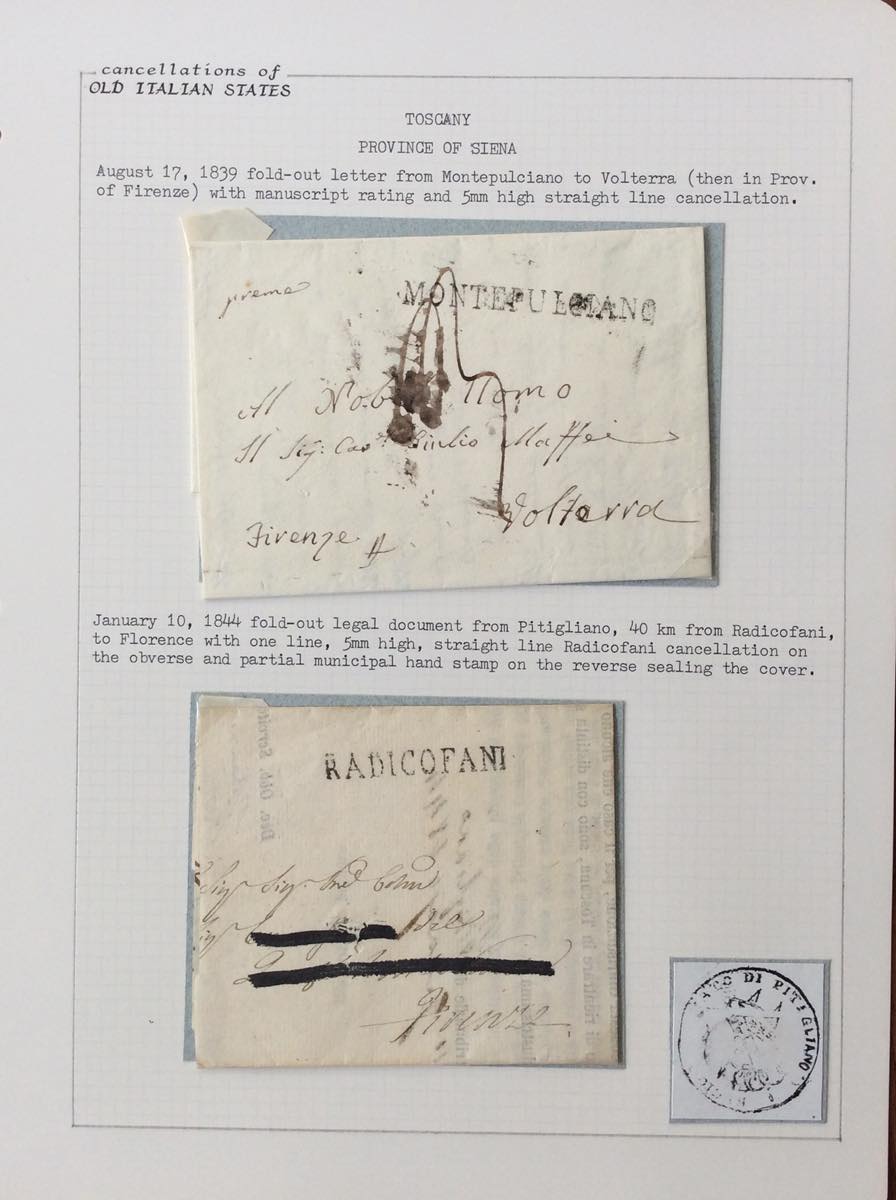 cancellations of
OLD ITALIAN STATES
TOSCANY
PROVINCE OF SIENA
August 17, 1839 fold-out letter from Montepulciano to Volterra (then in Prov.
of Firenze) with manuscript rating and 5mm high straight line cancellation.
preme
MONTEPULCIANO
Al Nobil Uomo
Il Sig: Cav: Giulio Maffei
Volterra
Firenze
January 10, 1844 fold-out legal document from Pitigliano, 40 km from Radicofani,
to Florence with one line, 5mm high, straight line Radicofani cancellation on
the obverse and partial municipal hand stamp on the reverse sealing the cover.
RADICOFANI
Sigr Sigr
Firenze
DI PITIGLIANO